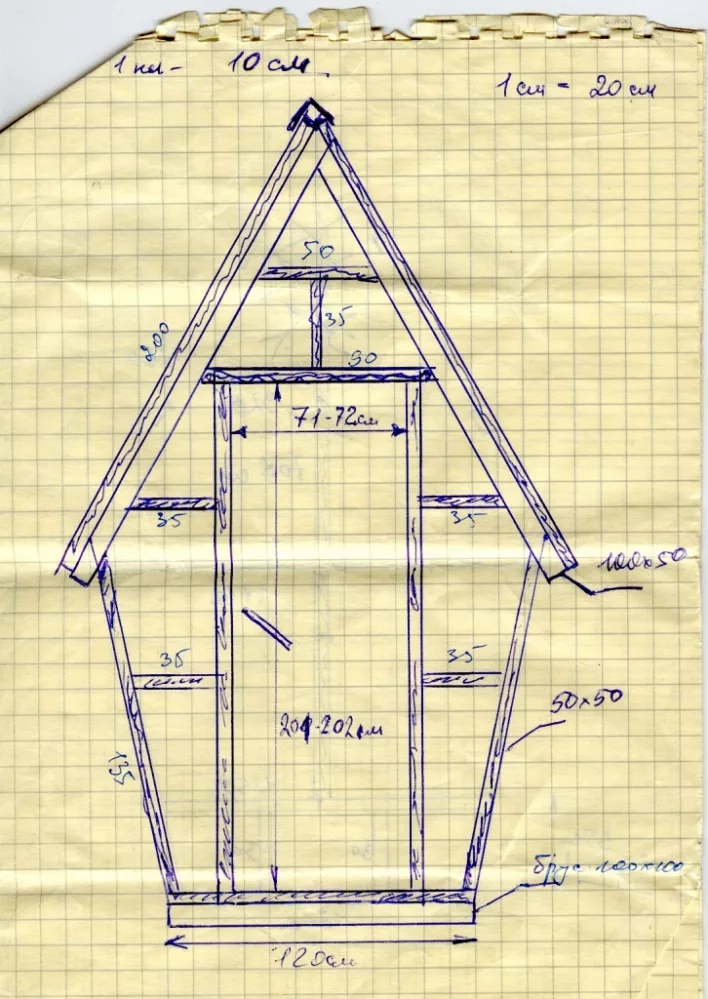 1 кл - 10 см
1 см = 20 см
50
35
200
90
71-72см
35
35
100x50
35
35
50x50
201-202см
135
брус 100x100
120см